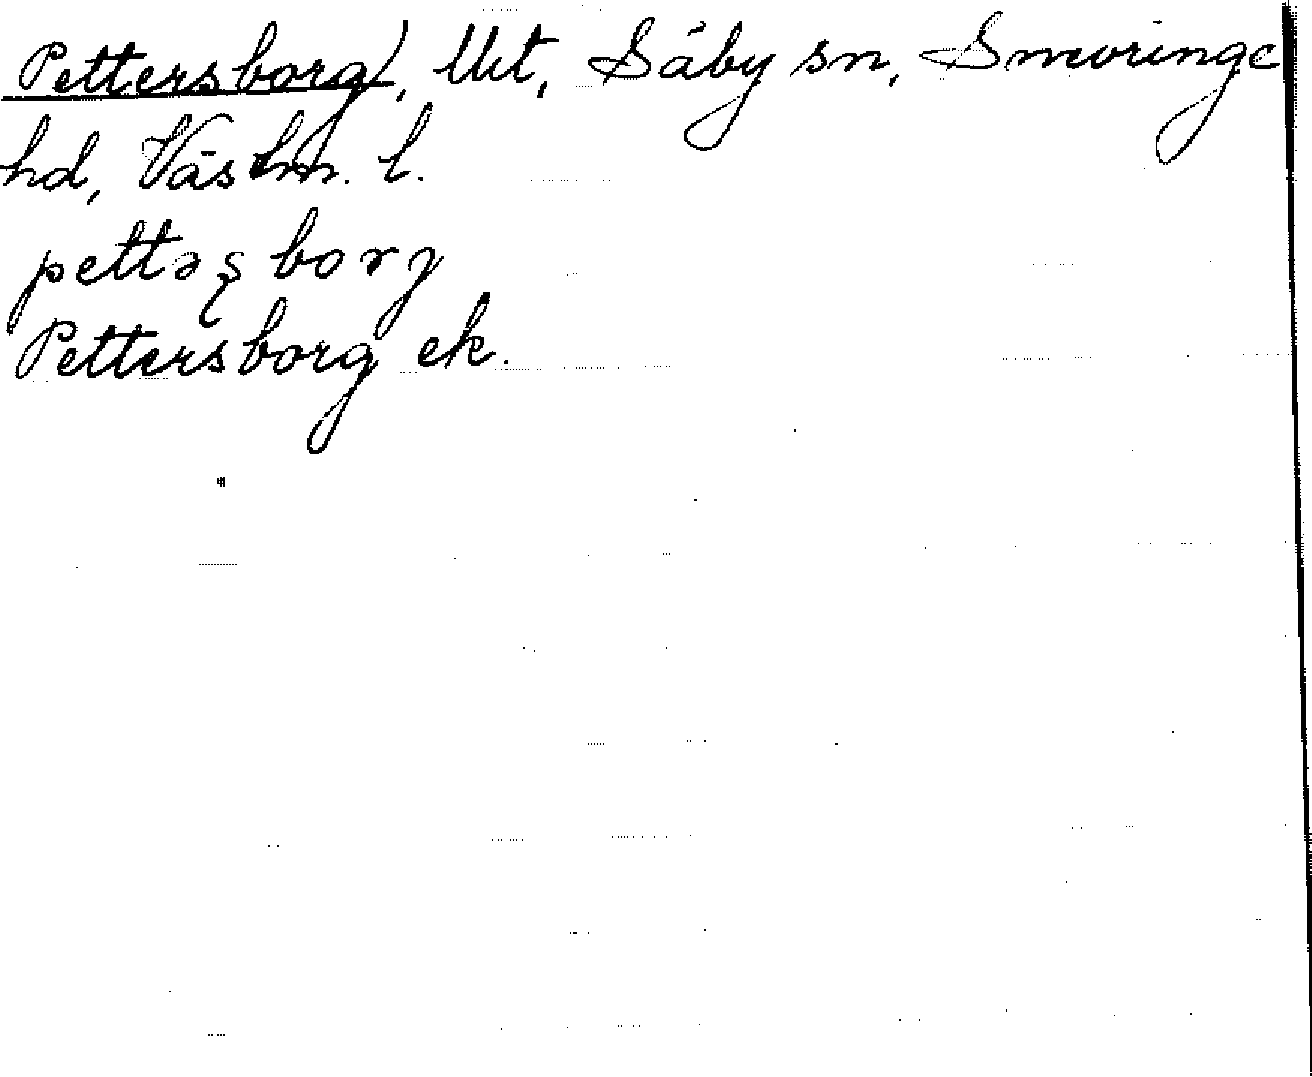 Pettersborg), Utt, Säby sn, Snevringe
hd, Västm. l.
pettəʂborj
Pettersborg ek.